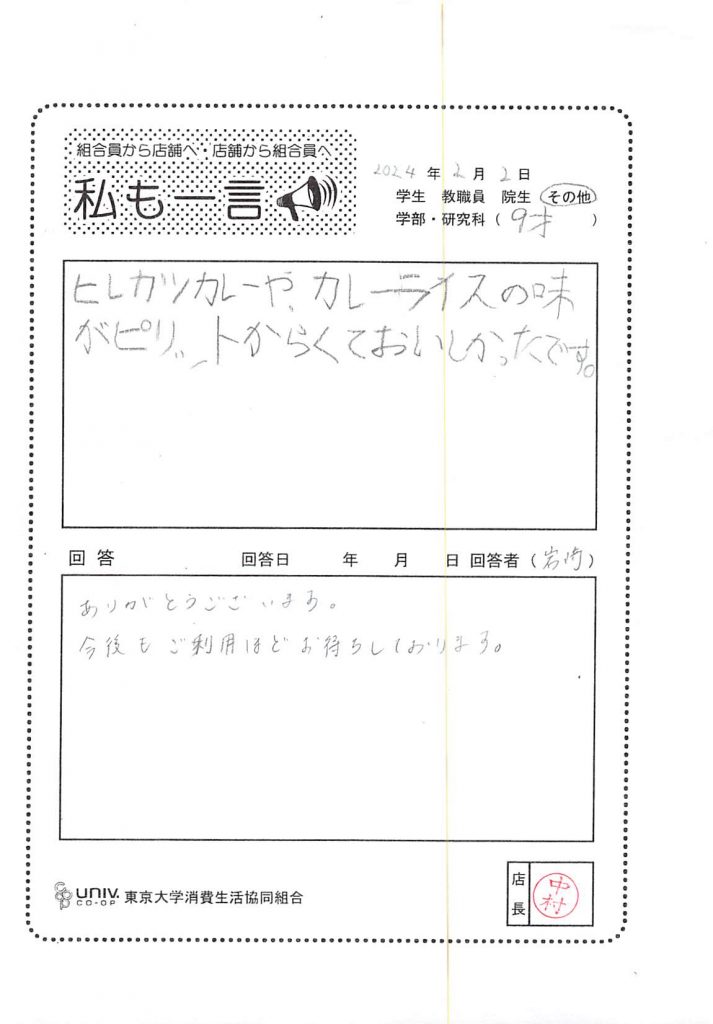 組合員から店舗へ・店舗から組合員へ
私も一言
2024年2月2日
学生 教職員 院生 その他
学部・研究科（9才）
ヒレカツカレーや、カレーライスの味
がピリットからくておいしかったです。
回答 回答日 年 月 日 回答者（岩崎）
ありがとうございます。
今後もご利用ほどお待ちしております。
UNIV.
CO-OP
東京大学消費生活協同組合
店長
中村